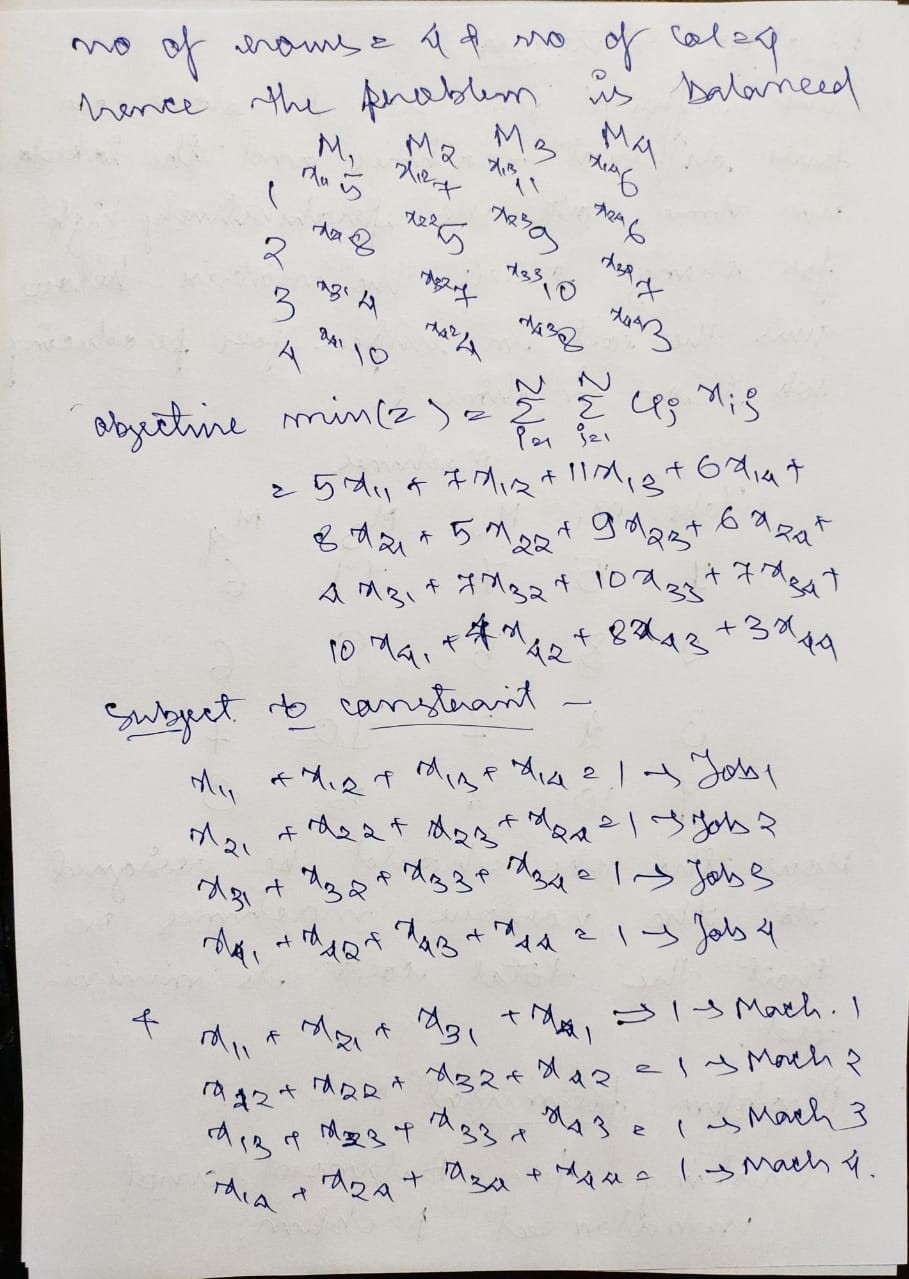 no of rows = 4 & no of col = 4
hence the problem is balanced
M1 M2 M3 M4
1 x11 5 x12 7 x13 11 x14 6
2 x21 8 x22 5 x23 9 x24 6
3 x31 4 x32 7 x33 10 x34 7
4 x41 10 x42 4 x43 8 x44 3
objective min(z) = N∑i=1 N∑j=1 cij xij
= 5x11 + 7x12 + 11x13 + 6x14 +
8x21 + 5x22 + 9x23 + 6x24 +
4x31 + 7x32 + 10x33 + 7x34 +
10x41 + 4x42 + 8x43 + 3x44
Subject to constraint -
x11 + x12 + x13 + x14 = 1 → Job 1
x21 + x22 + x23 + x24 = 1 → Job 2
x31 + x32 + x33 + x34 = 1 → Job 3
x41 + x42 + x43 + x44 = 1 → Job 4
& x11 + x21 + x31 + x41 = 1 → Mach. 1
x12 + x22 + x32 + x42 = 1 → Mach 2
x13 + x23 + x33 + x43 = 1 → Mach 3
x14 + x24 + x34 + x44 = 1 → Mach 4.